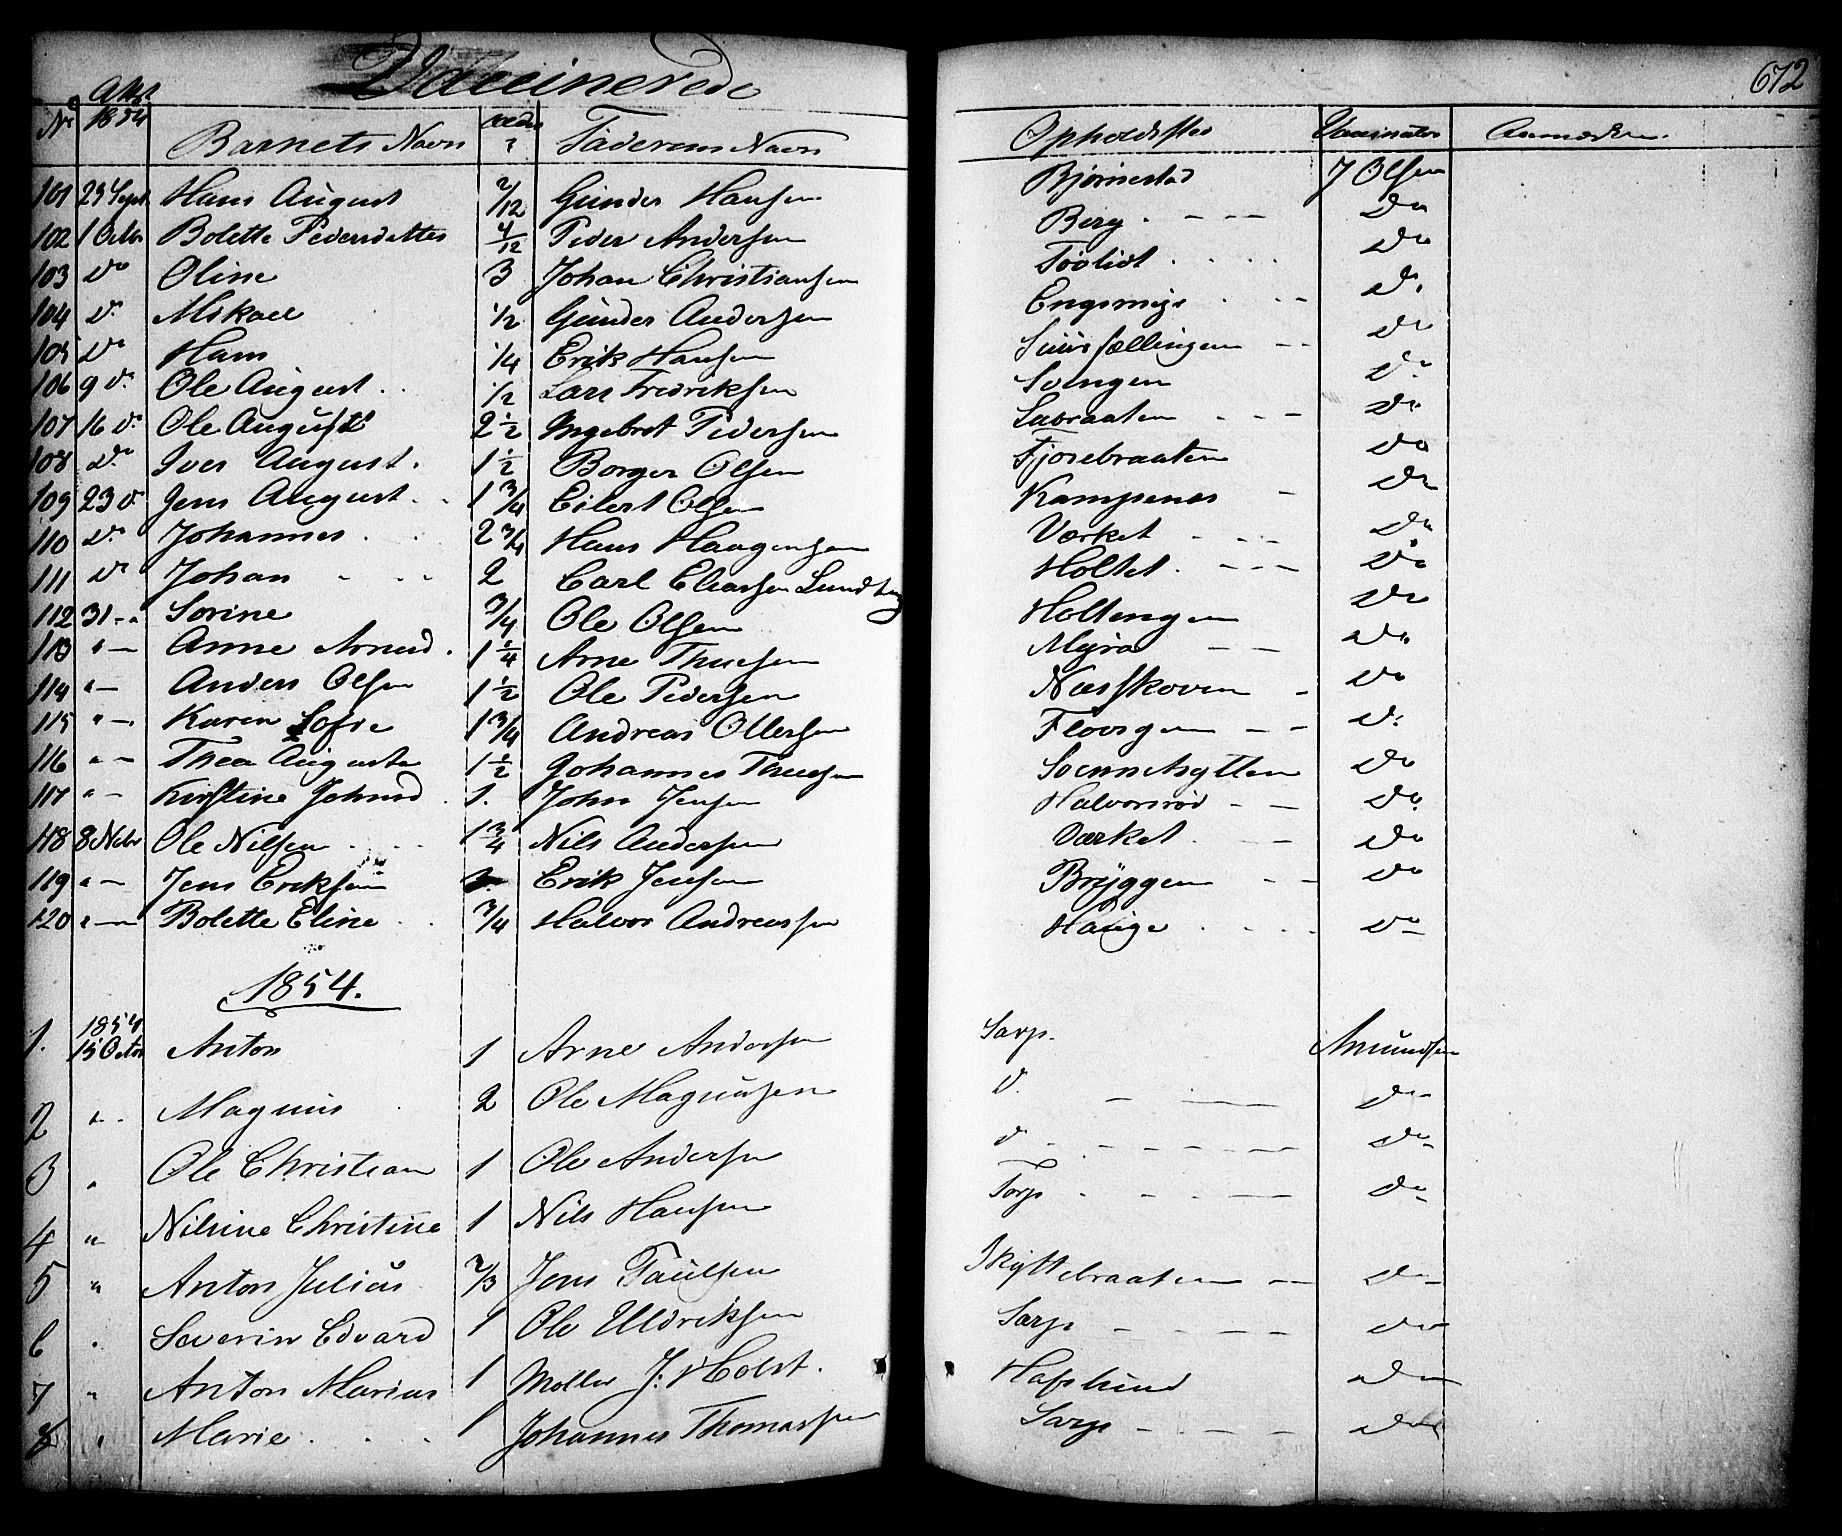 Vaccinerede 672
No 1854 Barnets Navn Faderens Navn Opholdssted Vaccinator Anmærkn.
101 23 Sept. Hans August 2/12 Gunder Hansen Bjørnestad J Olsen
102 1 Octbr Bolette Pedersdatter 4/12 Peder Andersen Berg Do
103 Do Oline 3 Johan Christiansen Do
104 Do Mikael 1/2 Gunder Andersen Do
105 Do Hans 1/4 Erik Hansen Do
106 9 Do Ole August 1/2 Lars Fredriksen Svingen Do
107 16 Do Ole August 2 1/2 Ingebret Pedersen Do
108 Do Iver August 1 1/2 Borger Olsen Fjosebraaten Do
109 23 Do Jens August 1 3/4 Eilert Olsen Kampenes Do
110 Do Johannes 2 3/4 Hans Haagensen Værket Do
111 Do Johan 2 Carl Eliassen Lundberg Holtet Do
112 31 - Sorine 3/4 Ole Olsen Holtengen Do
113 " - Anne Arnesd. 1 1/4 Arne Thuesen Myra Do
114 " - Anders Olsen 1 1/2 Ole Pedersen Næsskoven Do
115 " - Karen Sofie 1 3/4 Andreas Ottersen Do
116 " - Thea Augusta 1 1/2 Johannes Thuesen Do
117 " - Kirstine Johnsd. 1. John Jensen Halvorsrød Do
118 8 Nvbr Ole Nilsen 1 3/4 Nils Andersen Værket Do
119 " - Jens Eriksen Erik Jensen Bryggen Do
120 " - Bolette Eline 3/4 Halvor Andreassen Hauge Do
1854.
1. 1854 15 Octor Anton 1 Arne Andersen Sarp. Amundsen
2 " Magnus 2 Ole Magnusen D. Do
3 " Ole Christian 1 Ole Andersen D Do
4 " Nilsine Christine 1 Nils Hansen Torp Do
5 " Anton Julius 2/3 Jens Paulsen Skyttebraaten Do
6 " Severin Edvard 1 Ole Uldriksen Sarp Do
7 " Anton Marius 1 Møller J. Holst. Hafslund Do
8 " Marie 1 Johannes Thomassen Sarp Do